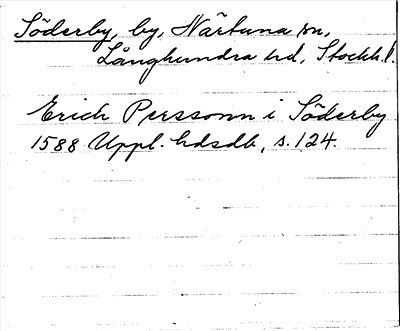 Söderby, by, Närtuna sn,
Långhundra hd, Stockh. l.
Erich Perssonn i Söderby
1588 Uppl. hdsdb, s. 124.